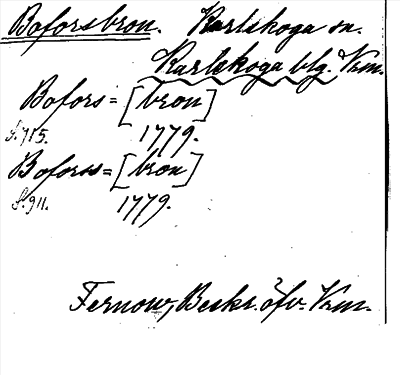 Boforsbron. Karlskoga sn.
Karlskoga blg. Vrm.
Bofors=[bron]
S. 715. 1779.
Boforss=[bron]
S. 911. 1779.
Fernow, Beskr. öfv. Vrm.